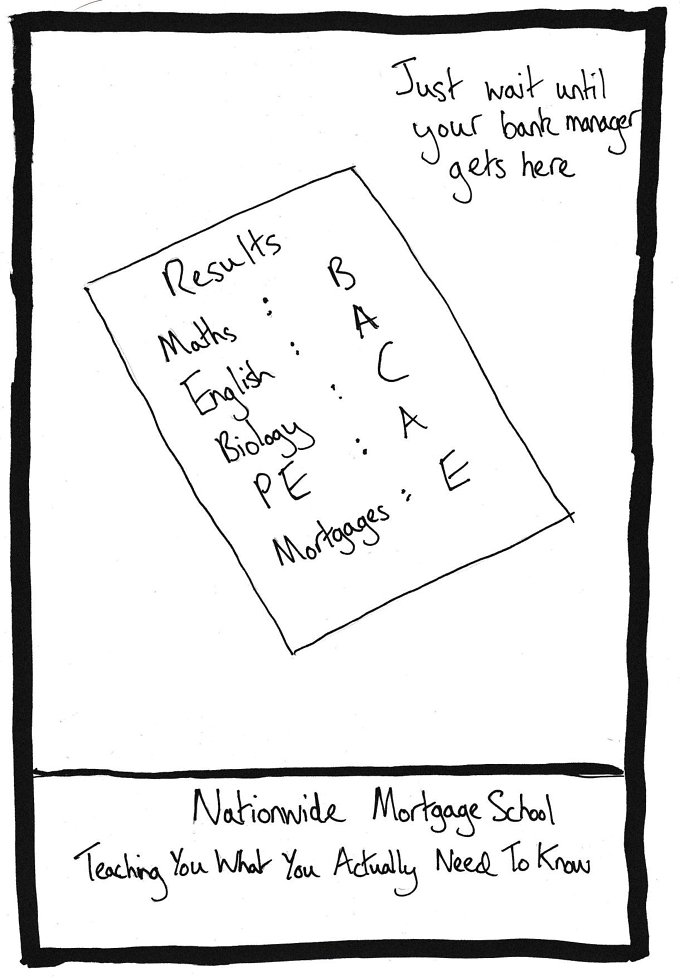 Just wait until
your bank manager
gets here
Results
Maths : B
English : A
Biology : C
PE : A
Mortgages : E
Nationwide Mortgage School
Teaching You What You Actually Need To Know